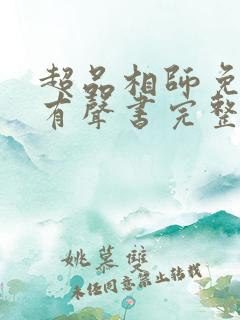 超品相師免
有聲書完整
姚慕雙
未經同意禁止轉載